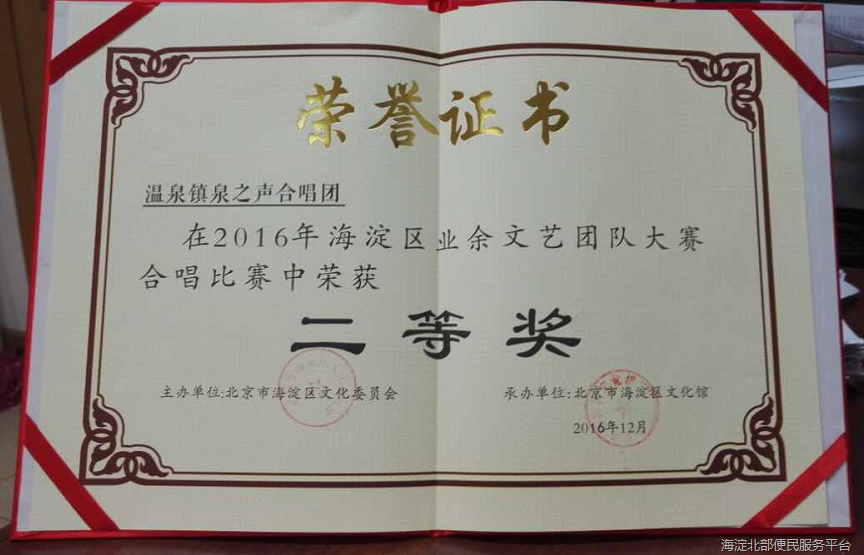 荣誉证书
温泉镇泉之声合唱团
在2016年海淀区业余文艺团队大赛
合唱比赛中荣获
二等奖
主办单位:北京市海淀区文化委员会
承办单位:北京市海淀区文化馆
2016年12月
海淀北部便民服务平台